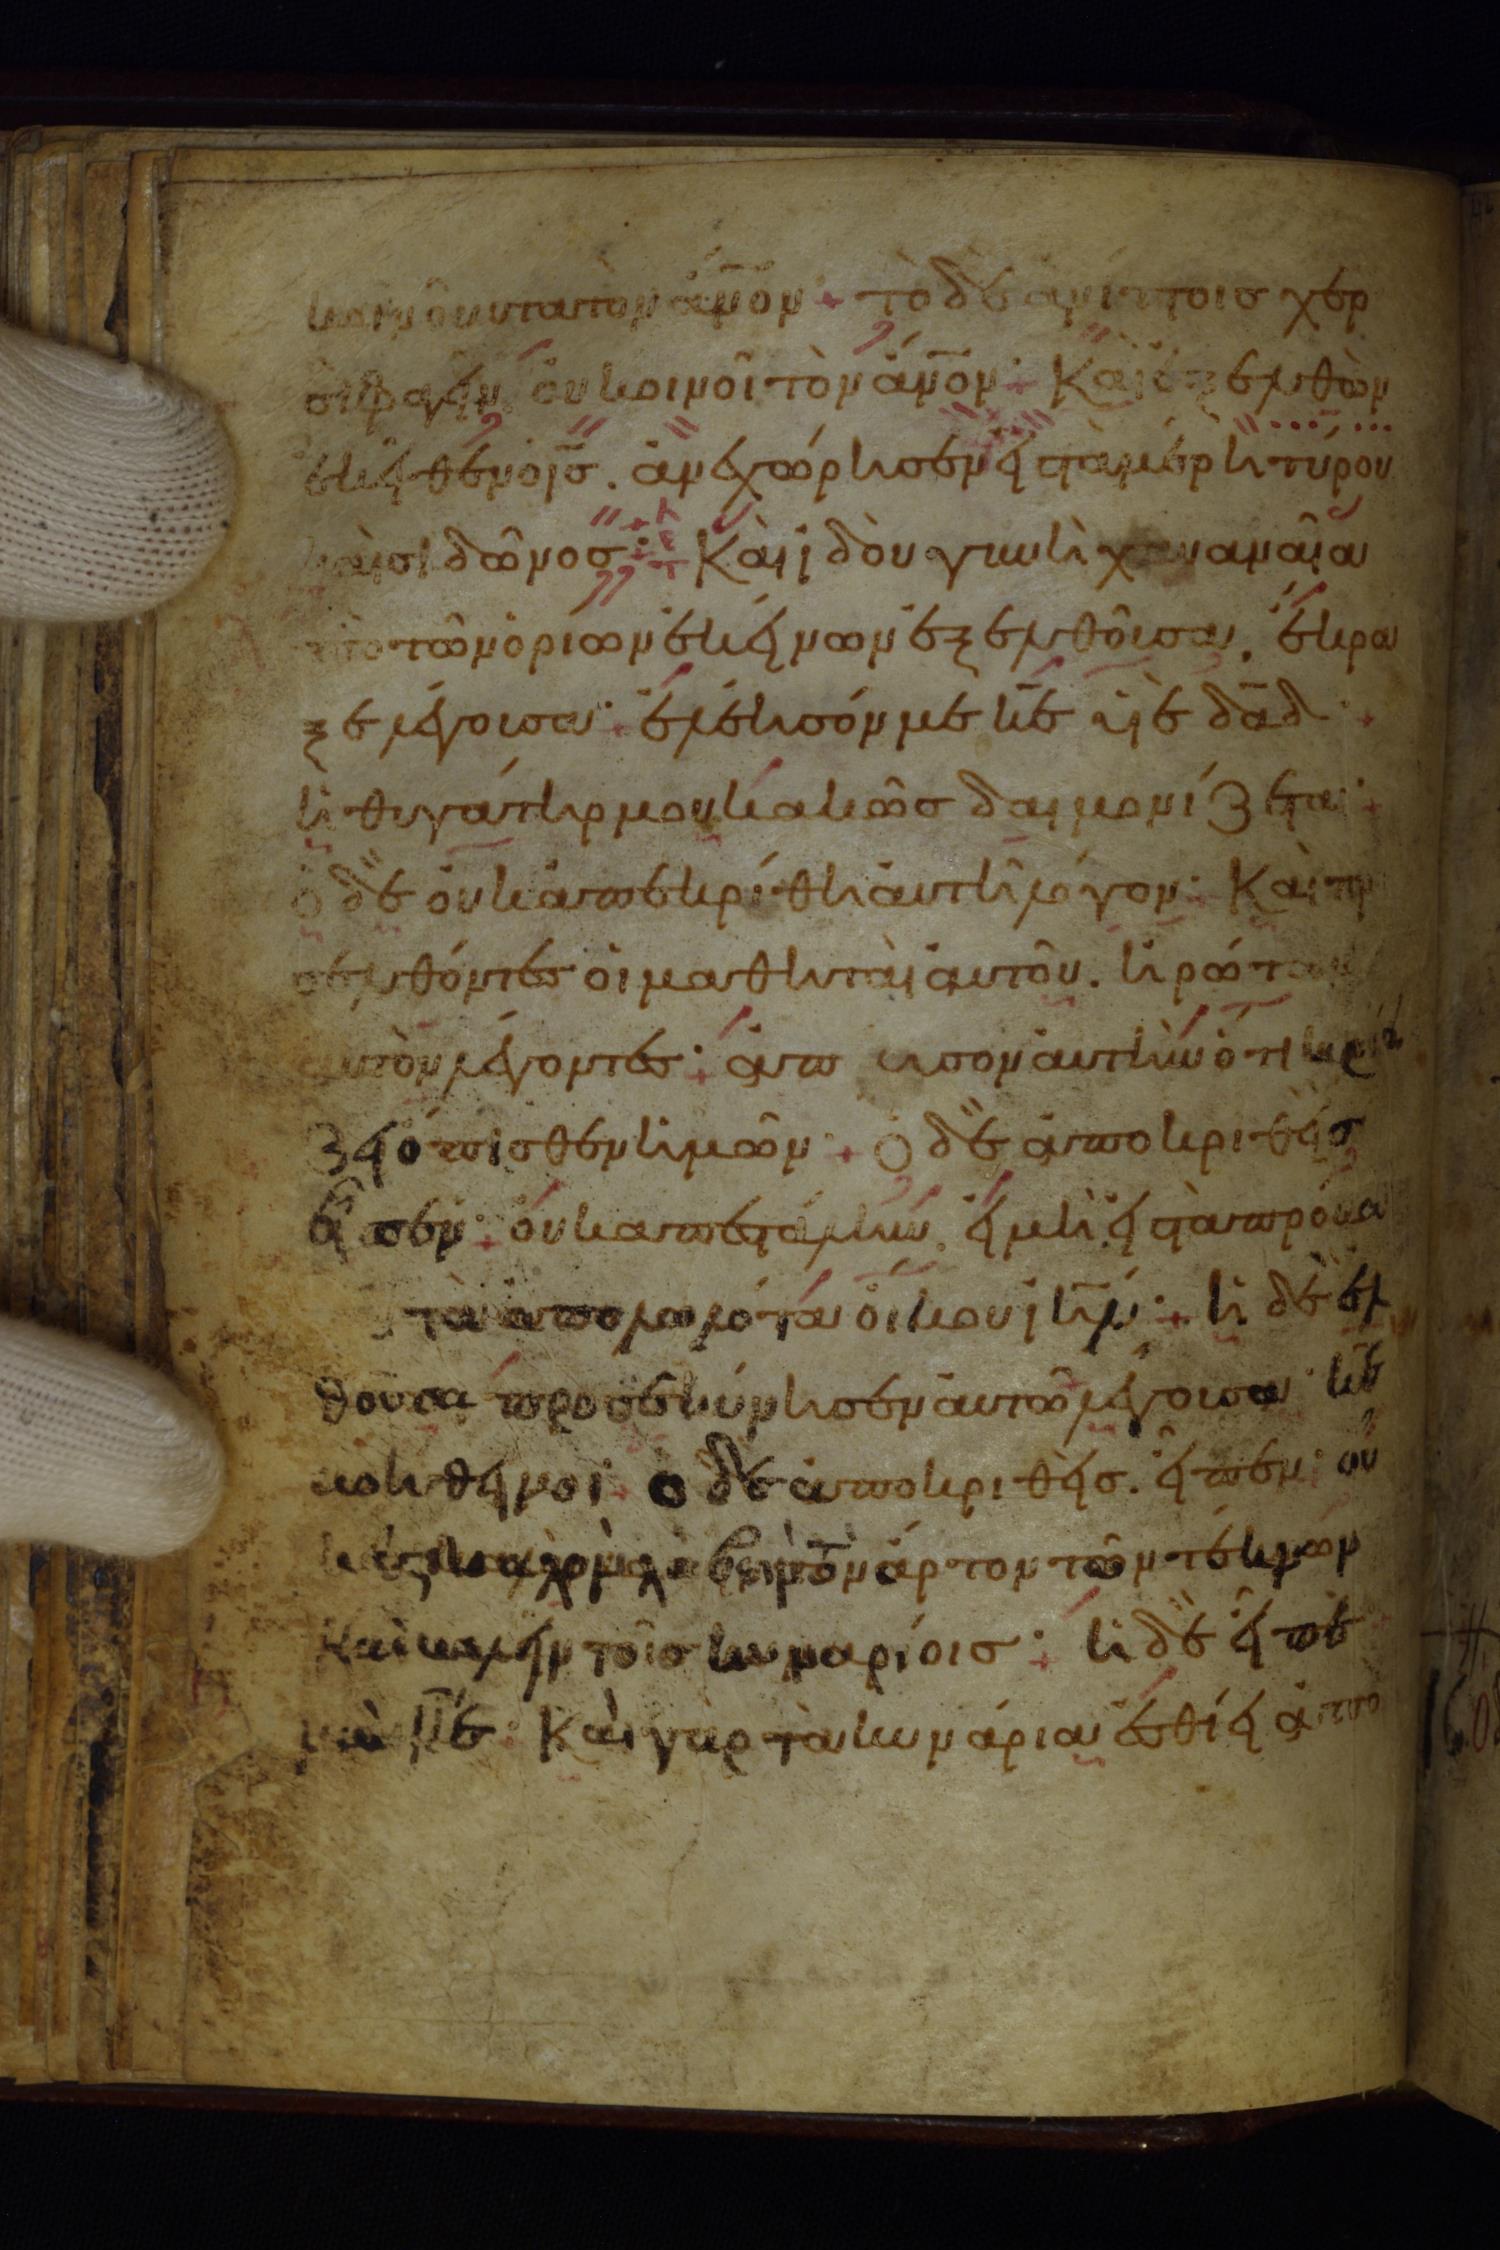 κοινοῦντα τὸν ἄν̅ον· τὸ δὲ ἀνίπτοις χερ
σὶ φαγεῖν, οὐ κοινοῖ τὸν ἄν̅ον· Καὶ ἐξελθὼν
ἐκεῖθεν ὁ ι̅ς̅. ἀνεχώρησεν εἰς τὰ μέρη τύρου
καὶ σιδῶνος· Καὶ ἰδοὺ γυνὴ χαναναῖα
ἀπὸ τῶν ὁρίων ἐκείνων ἐξελθοῦσα. ἔκραυ
ξε λέγουσα· ἐλέησόν με κ̅ε̅ υἱὲ δ̅α̅δ̅·
ἡ θυγάτηρ μου κακῶς δαιμονίζεται·
ὁ δὲ οὐκ ἀπεκρίθη αὐτῆ λόγον· Καὶ πρ
σελθόντες οἱ μαθηταὶ αὐτοῦ. ἠρώτων
αὐτὸν λέγοντες· ἀπόλυσον αὐτὴν ὅτι κρά
ζει ὄπισθεν ἡμῶν· ὁ δὲ ἀποκριθεὶς
εἶπεν· οὐκ ἀπεστάλην. εἰ μὴ εἰς τὰ πρόβα
τα τὰ ἀπολωλότα οἴκου ι̅η̅λ̅· ἡ δὲ ἐλ
θοῦσα προσεκύνησεν αὐτῶ λέγουσα· κ̅ε̅
βοήθει μοι· ὁ δὲ ἀποκριθεὶς. εἶπεν· οὐ
κ ἔστι καλὸν λαβεῖν τὸν ἄρτον τῶν τέκνων
καὶ βαλεῖν τοῖς κυναρίοις· ἡ δὲ εἶπε
ναὶ κ̅ε̅· Καὶ γὰρ τὰ κυνάρια ἐσθίει ἀπὸ